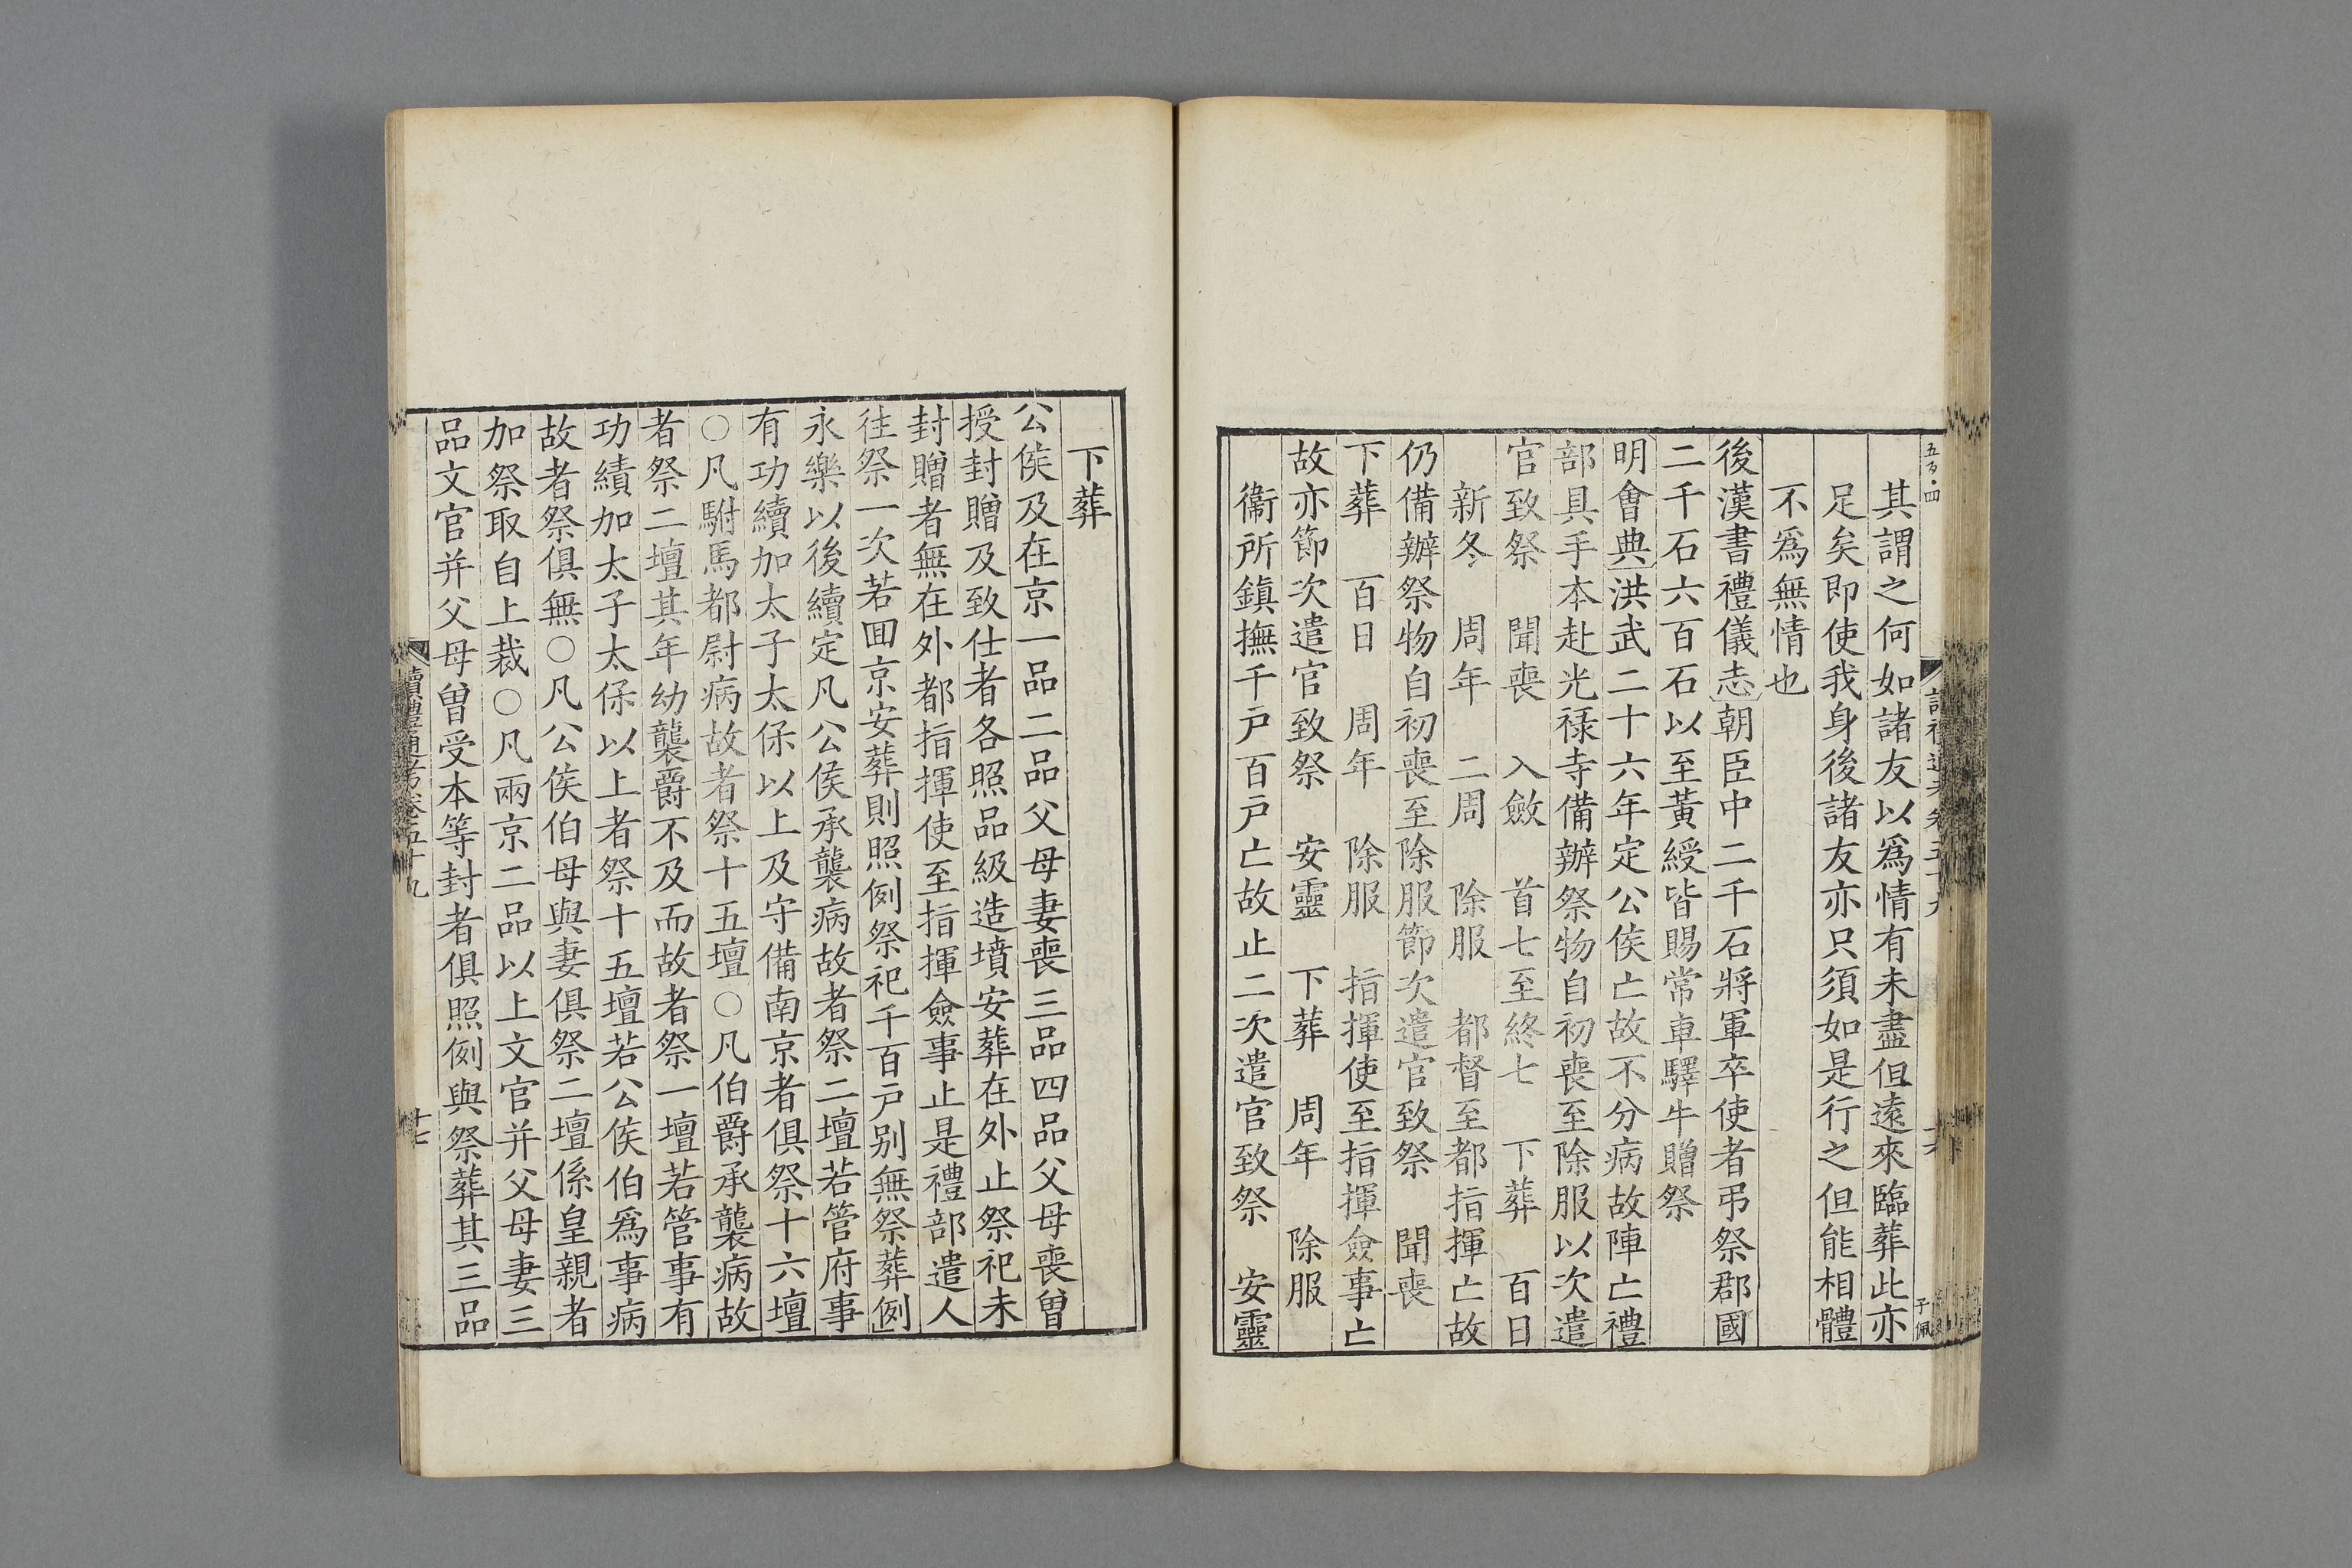 五百四
讀禮通考卷五十九
十六
子佩
其謂之何如諸友以爲情有未盡但遠來臨葬此亦
足矣即使我身後諸友亦只須如是行之但能相體
不爲無情也
後漢書禮儀志朝臣中二千石將軍卒使者弔祭郡國
二千石六百石以至黃綬皆賜常車驛牛贈祭
明會典洪武二十六年定公侯亡故不分病故陣亡禮
部具手本赴光祿寺備辦祭物自初喪至除服以次遣
官致祭　聞喪　入斂　首七至終七　下葬　百日
新冬　周年　二周　除服　都督至都指揮亡故
仍備辦祭物自初喪至除服節次遣官致祭　聞喪
下葬　百日　周年　除服　指揮使至指揮僉事亡
故亦節次遣官致祭　安靈　下葬　周年　除服
衞所鎮撫千戸百戸亡故止二次遣官致祭　安靈
下葬
公侯及在京一品二品父母妻喪三品四品父母喪曽
授封贈及致仕者各照品級造墳安葬在外止祭祀未
封贈者無在外都指揮使至指揮僉事止是禮部遣人
徃祭一次若囬京安葬則照例祭祀千百戸别無祭葬例
永樂以後續定凡公侯承襲病故者祭二壇若管府事
有功績加太子太保以上及守備南京者俱祭十六壇
○凡駙馬都尉病故者祭十五壇○凡伯爵承襲病故
者祭二壇其年幼襲爵不及而故者祭一壇若管事有
功績加太子太保以上者祭十五壇若公侯伯爲事病
故者祭俱無○凡公侯伯母與妻俱祭二壇係皇親者
加祭取自上裁○凡兩京二品以上文官并父母妻三
品文官并父母曽受本等封者俱照例與祭葬其三品
讀禮通考卷五十九
十七